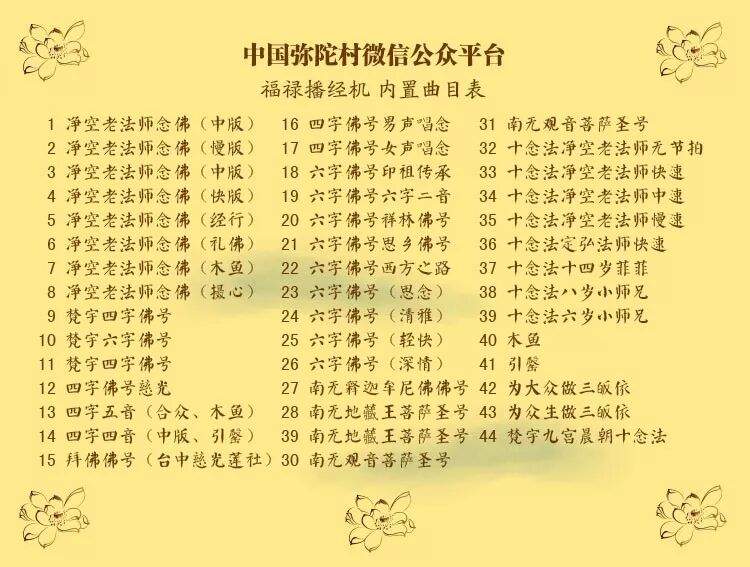 中国弥陀村微信公众平台
福禄播经机 内置曲目表
1 净空老法师念佛（中版）
2 净空老法师念佛（慢版）
3 净空老法师念佛（中版）
4 净空老法师念佛（快版）
5 净空老法师念佛（经行）
6 净空老法师念佛（礼佛）
7 净空老法师念佛（木鱼）
8 净空老法师念佛（摄心）
9 梵宇四字佛号
10 梵宇六字佛号
11 梵宇四字佛号
12 四字佛号慈光
13 四字五音（合众、木鱼）
14 四字四音（中版、引磬）
15 拜佛佛号（台中慈光莲社）
16 四字佛号男声唱念
17 四字佛号女声唱念
18 六字佛号印祖传承
19 六字佛号六字二音
20 六字佛号祥林佛号
21 六字佛号思乡佛号
22 六字佛号西方之路
23 六字佛号（思念）
24 六字佛号（清雅）
25 六字佛号（轻快）
26 六字佛号（深情）
27 南无释迦牟尼佛佛号
28 南无地藏王菩萨圣号
39 南无地藏王菩萨圣号
30 南无观音菩萨圣号
31 南无观音菩萨圣号
32 十念法净空老法师无节拍
33 十念法净空老法师快速
34 十念法净空老法师中速
35 十念法净空老法师慢速
36 十念法定弘法师快速
37 十念法十四岁菲菲
38 十念法八岁小师兄
39 十念法六岁小师兄
40 木鱼
41 引磬
42 为大众做三皈依
43 为众生做三皈依
44 梵宇九宫晨朝十念法